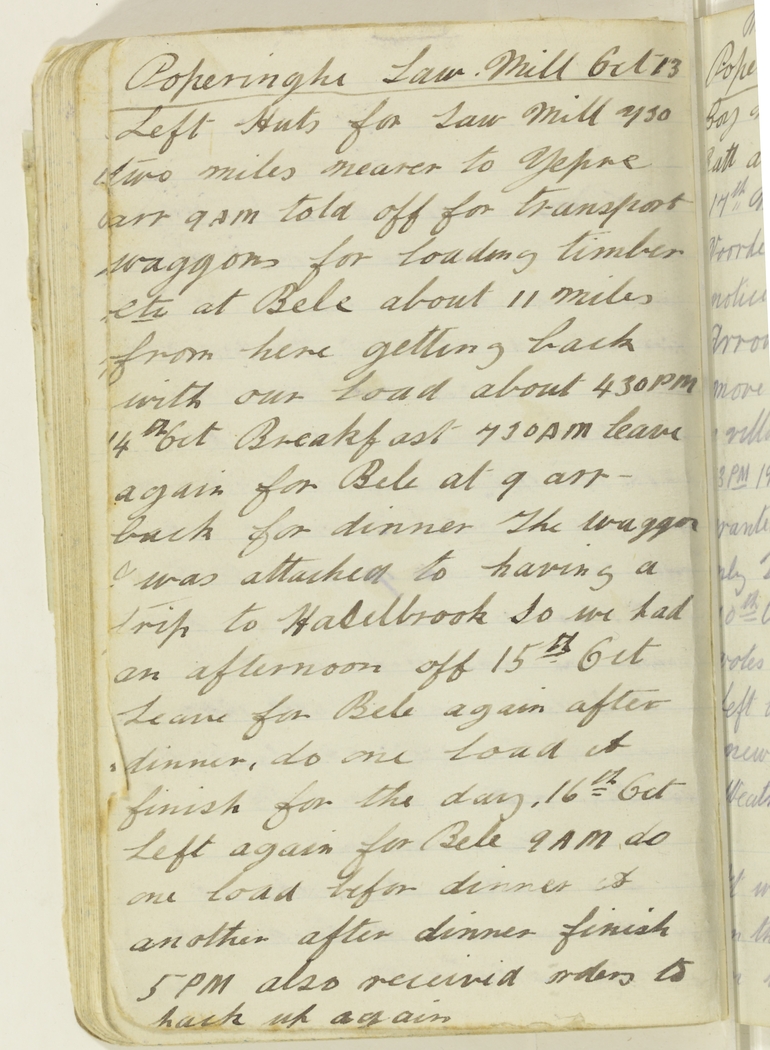 Poperinghe Saw Mill Oct 13
Left Huts for Saw Mill 730
two miles nearer to Yepre
arr 9AM told off for transport
waggons for loading timber
etc at Bele about 11 miles
from here getting back
with our load about 430PM
14th Oct Breakfast 730AM leave
again for Bele at 9 arr-
back for dinner The waggon
was attached to having a
trip to Haselbrook So we had
an afternoon off 15th Oct
Leave for Bele again after
dinner, do one load &
finish for the day, 16th Oct
Left again for Bele 9AM do
one load befor dinner &
another after dinner finish
5PM also received orders to
pack up again
Pope
17th
notice
move
3PM
left
new